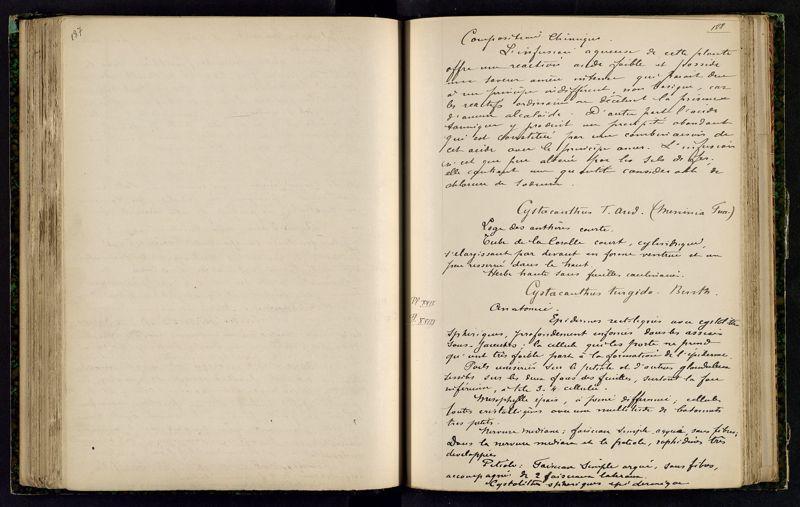 187
188
Composition Chimique.
L'infusion aqueuse de cette plante
offre une réaction acide faible et possède
une saveur amère intense qui parait due
à un principe indifférent, non basique, car
les réactifs ordinaires ne décèlent la présence
d'aucun alcaloïde. D'autre part l'acide
tannique y produit un précipité abondant
qui est constitué par une combinaison de
cet acide avec le principe amer. L'infusion
n'est que peu altérée par les sels de fer.
elle contient une quantité considérable de
chlorure de sodium.
Cystacanthus T. And. (Meninia Fua.)
Loge des anthères courte.
Tube de la Corolle court, cylindrique,
s'élargissant par devant en forme ventrue et un
peu resserré dans le haut.
Herbe haute sans feuilles caulinaires.
Cystacanthus turgida. Benth.
Pl. XVII
Pl. XVIII
Anatomie.
Epidermes rectilignes avec cystolithes
sphériques, profondement enfoncés dans les assises
sous-jacentes; la cellule qui les porte ne prend
qu'une très faible part à la formation de l'épiderme.
Poils unisériés sur le pétiole et d'autres glanduleux
sessiles sur les deux faces des feuilles, surtout la face
inférieure, à tête 3-4 cellulée.
Mesophylle épais, à peine différencié; cellules
toutes cristalligènes avec une multitude de batonnets
très petits.
Nervure médiane; faisceau simple arqué sans fibres;
Dans la nervure médiane et le pétiole, raphidines très
développées
Pétiole: Faisceau simple arqué, sans fibres,
accompagné de 2 faisceaux latéraux.
Cystolithes sphériques épidermiques